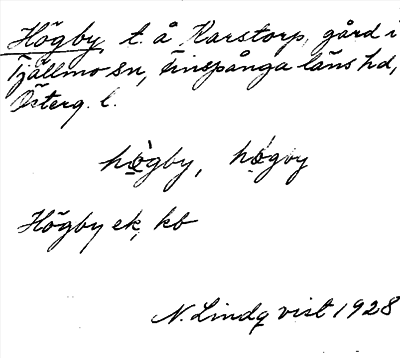 Högby, t. å Karstorp, gård i
Tjällmo sn, Finspånga läns hd,
Österg. l.
hø̀gby, hǿgby
Högby ek, kb
N. Lindqvist 1928